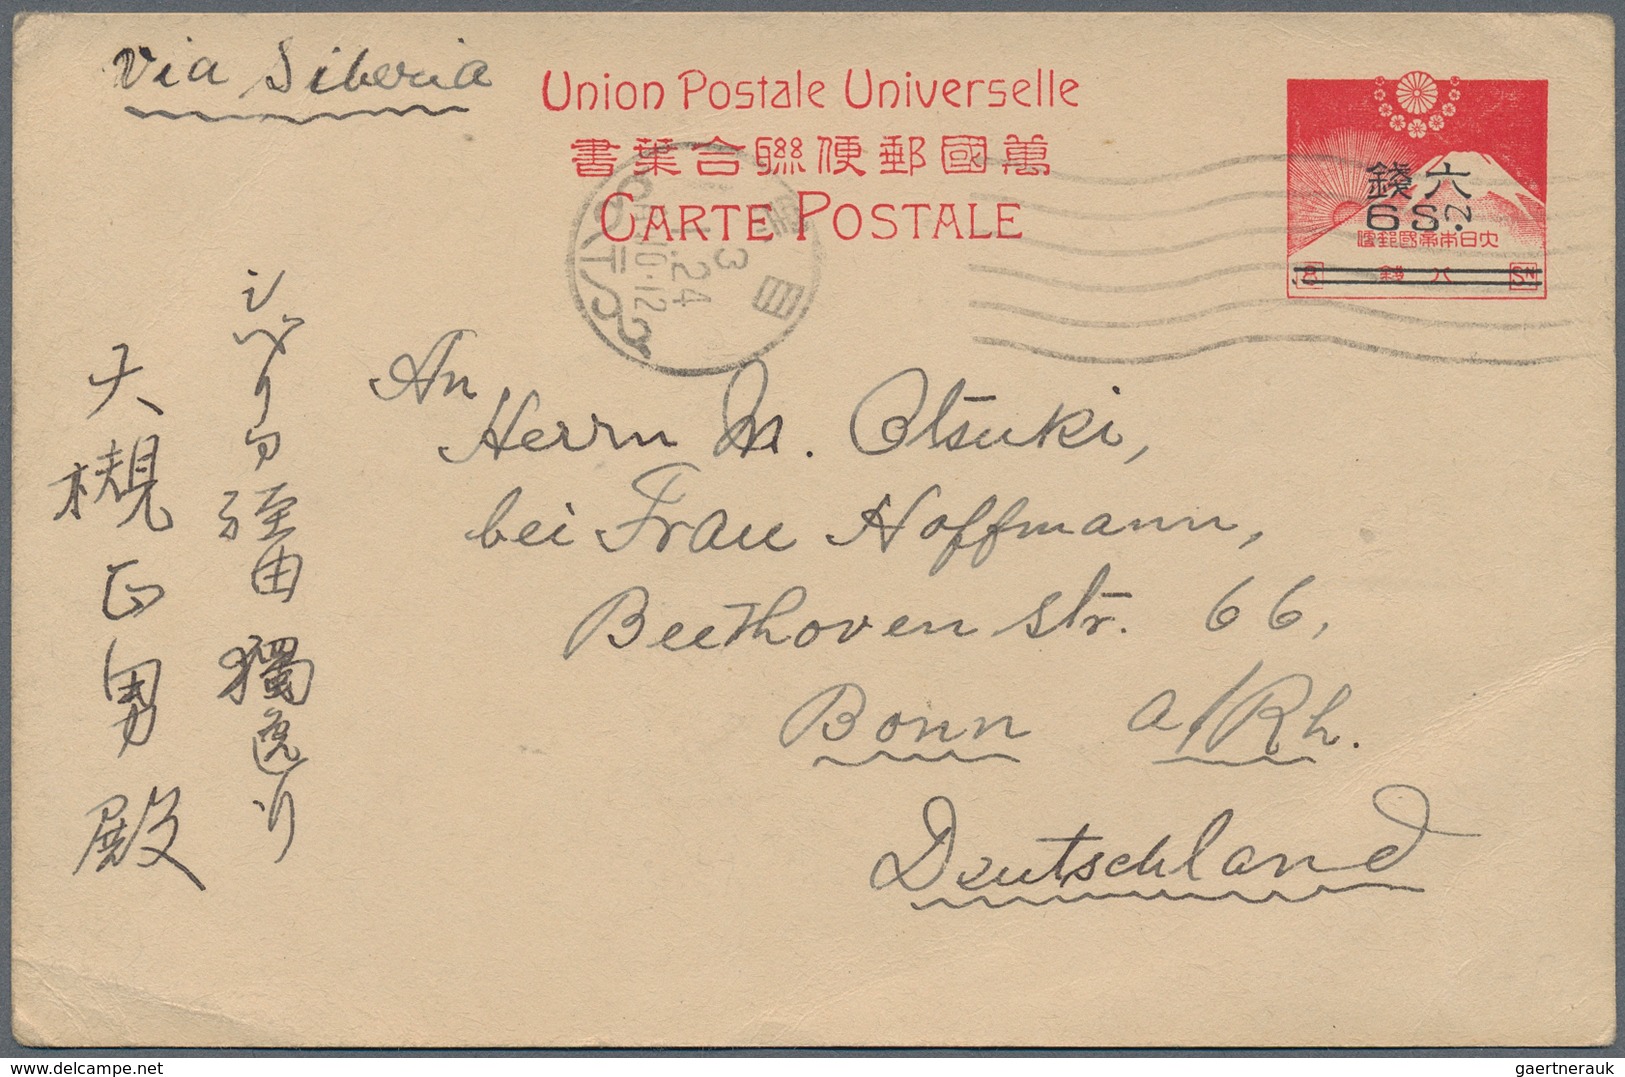 Via Siberia
Union Postale Universelle
書葉合聯便郵國萬
CARTE POSTALE
錢六
6 Sⁿ.
便郵國帝本日大
8 錢八 Sⁿ
目黒
3
1.24
AM10-12
An
Herrn M. Otsuki,
bei Frau Hoffmann,
Beethoven str. 66,
Bonn a/Rh.
Deutschland
シベリヤ經由 獨逸行
大槻正男殿
gaertnerauk